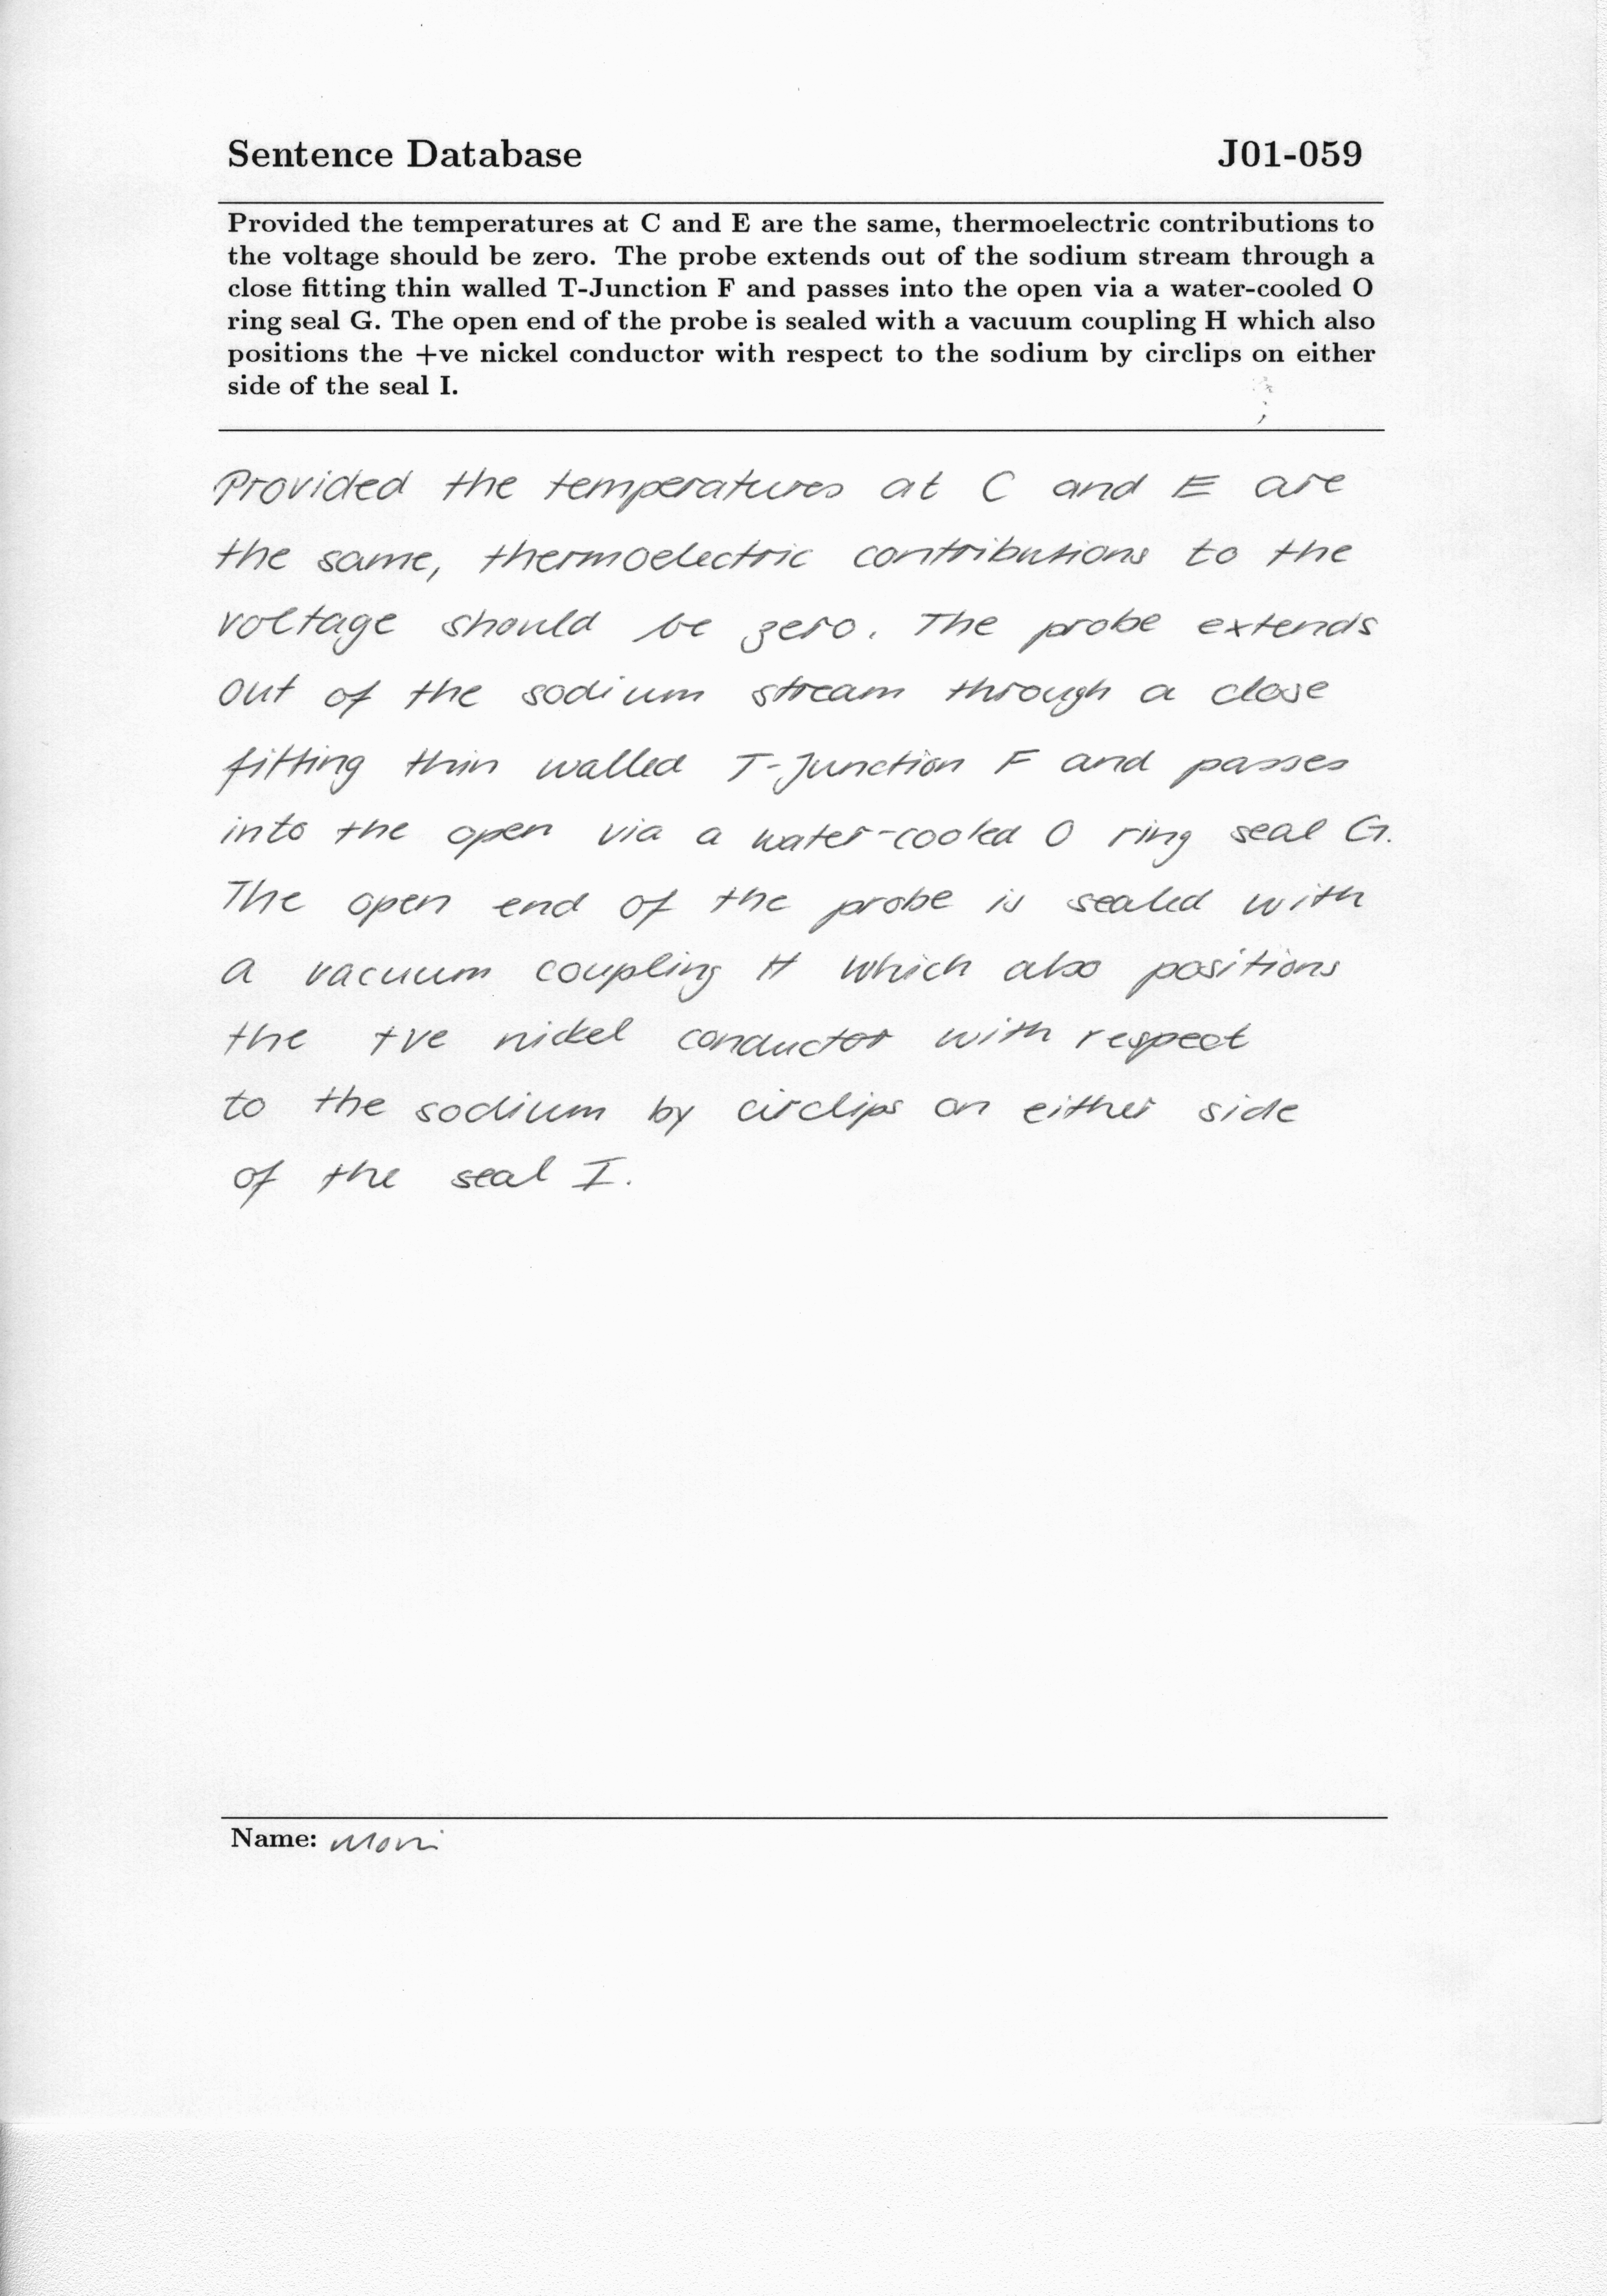 Sentence Database J01-059
Provided the temperatures at C and E are the same, thermoelectric contributions to
the voltage should be zero. The probe extends out of the sodium stream through a
close fitting thin walled T-Junction F and passes into the open via a water-cooled O
ring seal G. The open end of the probe is sealed with a vacuum coupling H which also
positions the +ve nickel conductor with respect to the sodium by circlips on either
side of the seal I.
Provided the temperatures at C and E are
the same, thermoelectric contributions to the
voltage should be zero. The probe extends
out of the sodium stream through a close
fitting thin walled T-Junction F and passes
into the open via a water-cooled O ring seal G.
The open end of the probe is sealed with
a vacuum coupling H which also positions
the +ve nickel conductor with respect
to the sodium by circlips on either side
of the seal I.
Name: Moni